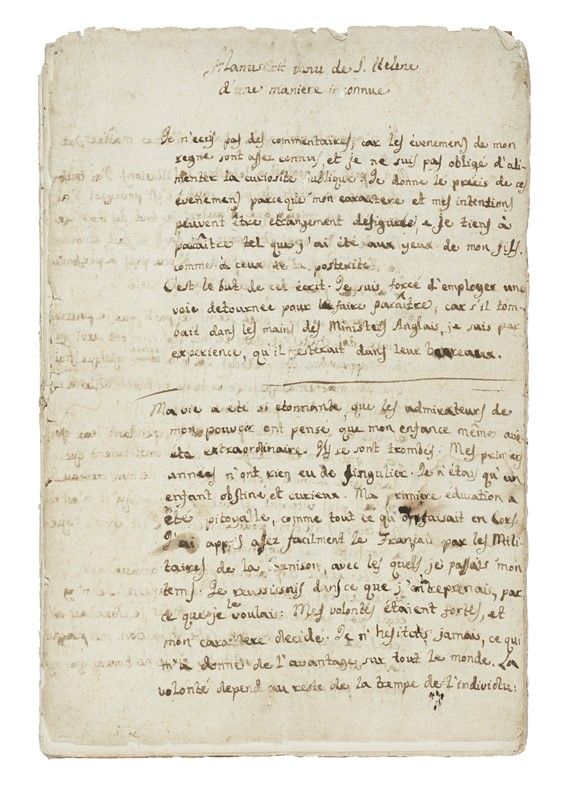 Manuscrit venu de S. Helene
d'une maniere inconnue
Je n'ecris pas des commentaires, car les évenemens de mon
regne sont assez connu, et je ne suis pas obligé d'ali-
menter la curiosité publique. Je donne le précis de ces
évenemens parceque mon caractere et mes intentions
peuvent étre etrangement defigurés, e je tiens à
paraître tel que j'ai été aux yeux de mon fils,
comme à ceux de la posterité.
C'est le but de cet écrit. Je suis forcé d'employer une
voie detournée pour le faire paraître, car s'il tom-
bait dans les mains des Ministres Anglais, je sais par
experience, qu'il resterait dans leur bureaux.
Ma vie a été si etonnante, que les admirateurs de
mon pouvoir ont pensé que mon enfance même avait
été extraordinaire. Ils se sont trombés. Mes premiers
années n'ont rien eu de singulier. Je n'étais qu'un
enfant obstiné, et curieux. Ma première éducation a
été pitoyable, comme tout ce qu'on faisait en Cors
J'ai appris assez facilement le Français par les Mili-
taires de la Garnison, avec les quels je passais mon
tems. Je reussissais dans ce que j'entreprenais, par
ce que je le voulais: Mes volontés étaient fortes, et
mon caractere decidé. Je n'hésitois jamais, ce qui
m'a donné de l'avantage sur tout le monde. La
volonté depend au reste de la trempe de l'individu: